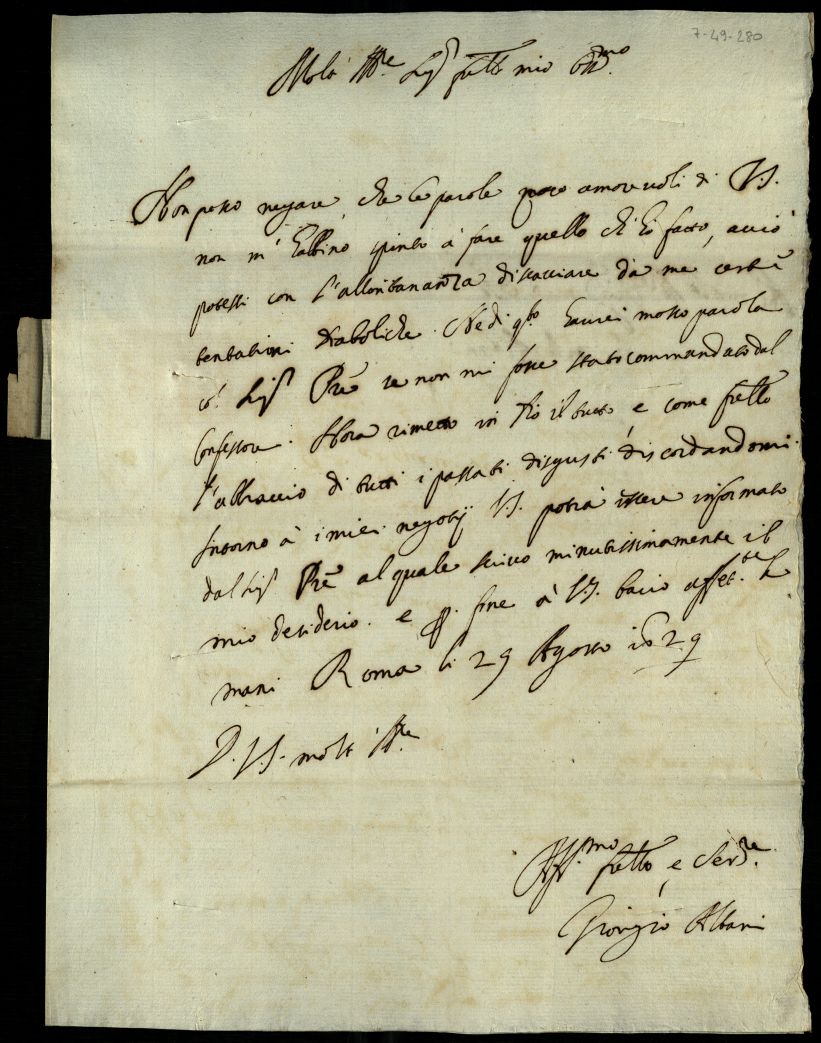 7-49-280
Molto Ill.re Sig.r fratello mio Oss.mo
Non posso negare, che le parole poco amorevoli di V.S.
non m'habbino spinto à fare quello ch'hò fatto, acciò
potessi con l'allontananza discacciare da me certe
tentationi diaboliche. Ne di q.to haurei mosso parola
col Sig.r P̃re se non mi fosse stato commandato dal
Confessore. Hora rimetto in Dio il tutto e come fratello
l'abbraccio di tutti i passati disgusti discordandomi.
Intorno à i miei negotij V.S. potrà essere informato
dal Sig.r P̃re al quale scrivo minutissimamente il
mio desiderio. e p. fine à V.S. bacio affet.te le
mani Roma li 29 Agosto 1629
D. V.S. molt'Ill.re
Aff.mo fratello e Ser.re
Giorgio Albani